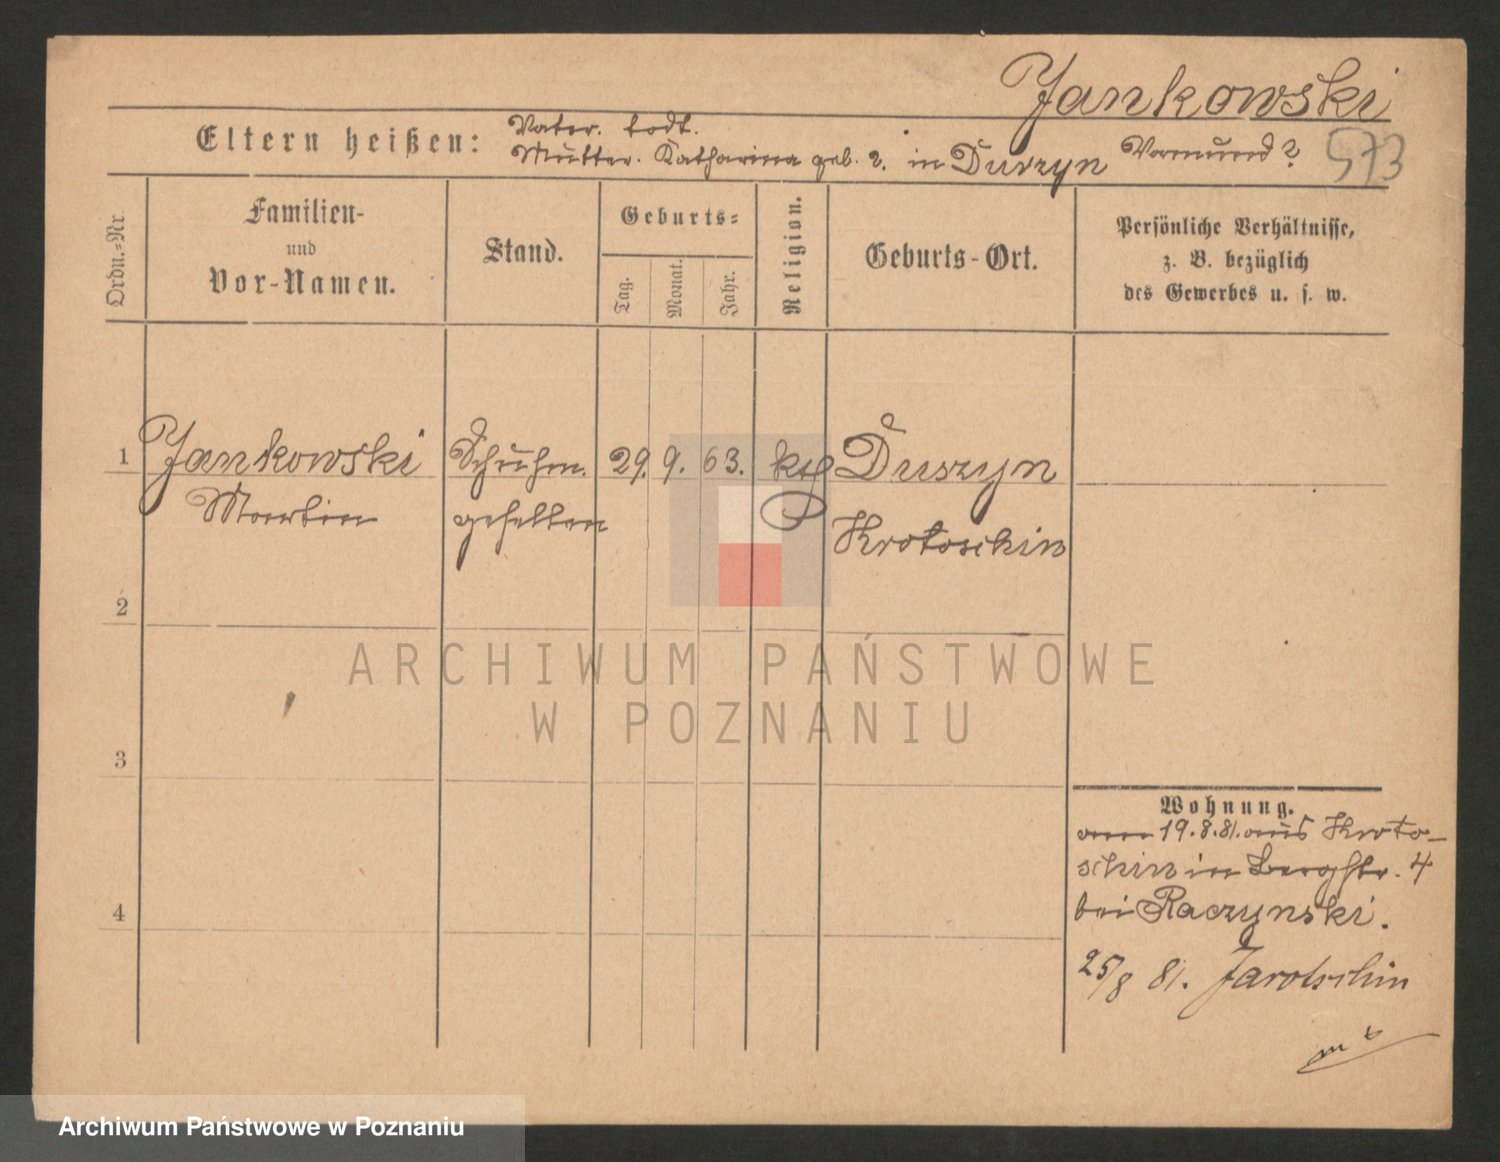 Jankowski
573
Eltern heißen:
Vater. todt.
Mutter. Katharina geb. ?. in Duszyn Vormund?
Ordn.=Nr
Familien-
und
Vor-Namen.
Stand.
Geburts=
Tag.
Monat.
Jahr.
Religion.
Geburts-Ort.
Persönliche Verhältnisse,
z. B. bezüglich
des Gewerbes u. s. w.
1
Jankowski Schuhm. 29. 9. 63. kth Duszyn
Martin gesellen Krotoschin
2
3
4
Wohnung.
19.8.81. aus Kroto-
schin in Bergstr. 4
bei Raczynski.
25/8 81. Jarotschin
ARCHIWUM PAŃSTWOWE
W POZNANIU
Archiwum Państwowe w Poznaniu